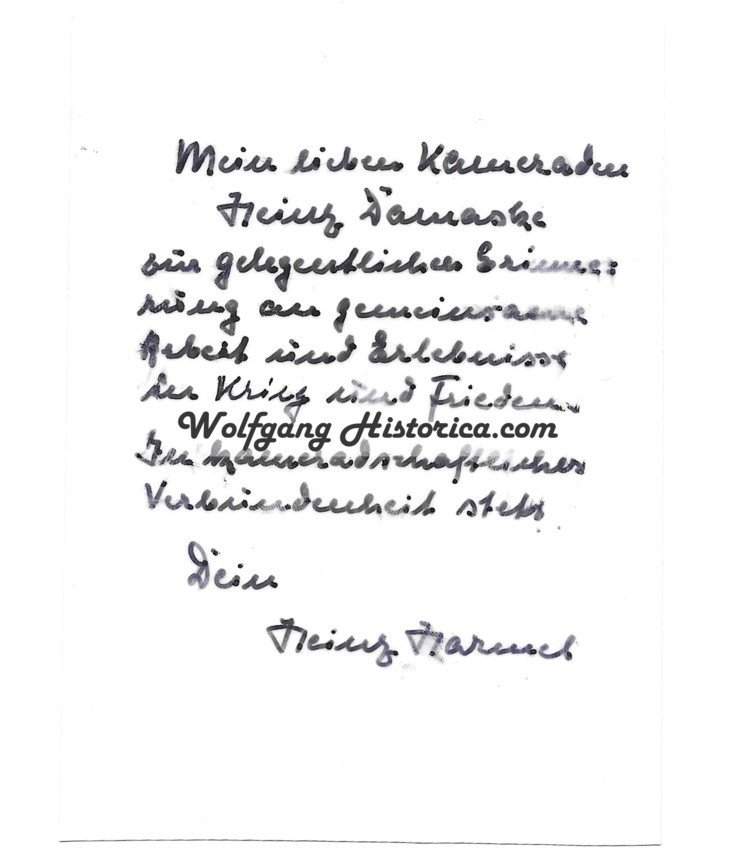 Mein lieben Kameraden
Heinz Damaske
zur gelegentlichen Erinne=
rung an gemeinsame
Arbeit und Erlebnisse
in Krieg und Frieden.
Wolfgang Historica.com
In kameradschaftlicher
Verbundenheit stets
Dein
Heinz Harmel